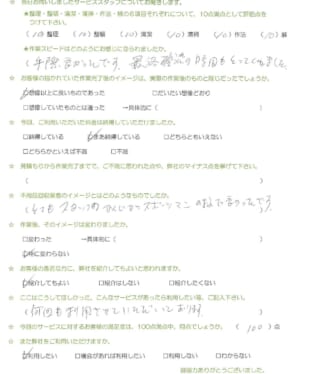 ☆ 当日お伺いしましたサービススタッフについてお聞きします。
★整理・整頓・清潔・清掃・作法・様の6項目それぞれについて、10点満点として評価点を
つけて下さい。
(10)整理 (10)整頓 (10)清潔 (10)清掃 (10)作法 (10)
★作業スピードはどのようにお感じになられましたか。
☆ お客様の描かれていた作業完了後のイメージは、実際の作業後のものと同じだったでしょうか。
☑想像以上に良いものであった □だいたい想像どおり
□想像していたものとは違った →具体的に( )
☆ 今回、ご利用いただいた料金は納得していただけましたか。
□納得している ☑まあ納得している □どちらともいえない
□どちらかといえば不満 □不満
☆ 見積もりから作業完了まで、ご不満に思われた点や、弊社のマイナス点を挙げて下さい。
( )
☆ 不用品回収業者のイメージとはどのようなものでしたか。
☆ 作業後、そのイメージは変わりましたか。
□変わった →具体的に( )
☑特に変わらない
☆ お客様の身近な方に、弊社を紹介してもよいと思われますか。
☑紹介してもよい □紹介はしない □紹介したくない
☆ ここはこうしてほしかった、こんなサービスがあったら利用したい等、ご記入下さい。
(何回も利用させていただいております。)
☆ 今回のサービスに対するお客様の満足度は、100点満点中、何点でしょうか。(100)点
☆ また弊社をご利用いただけますか。
☑利用したい □機会があれば利用したい □利用しない □わからない
御協力ありがとうございました。